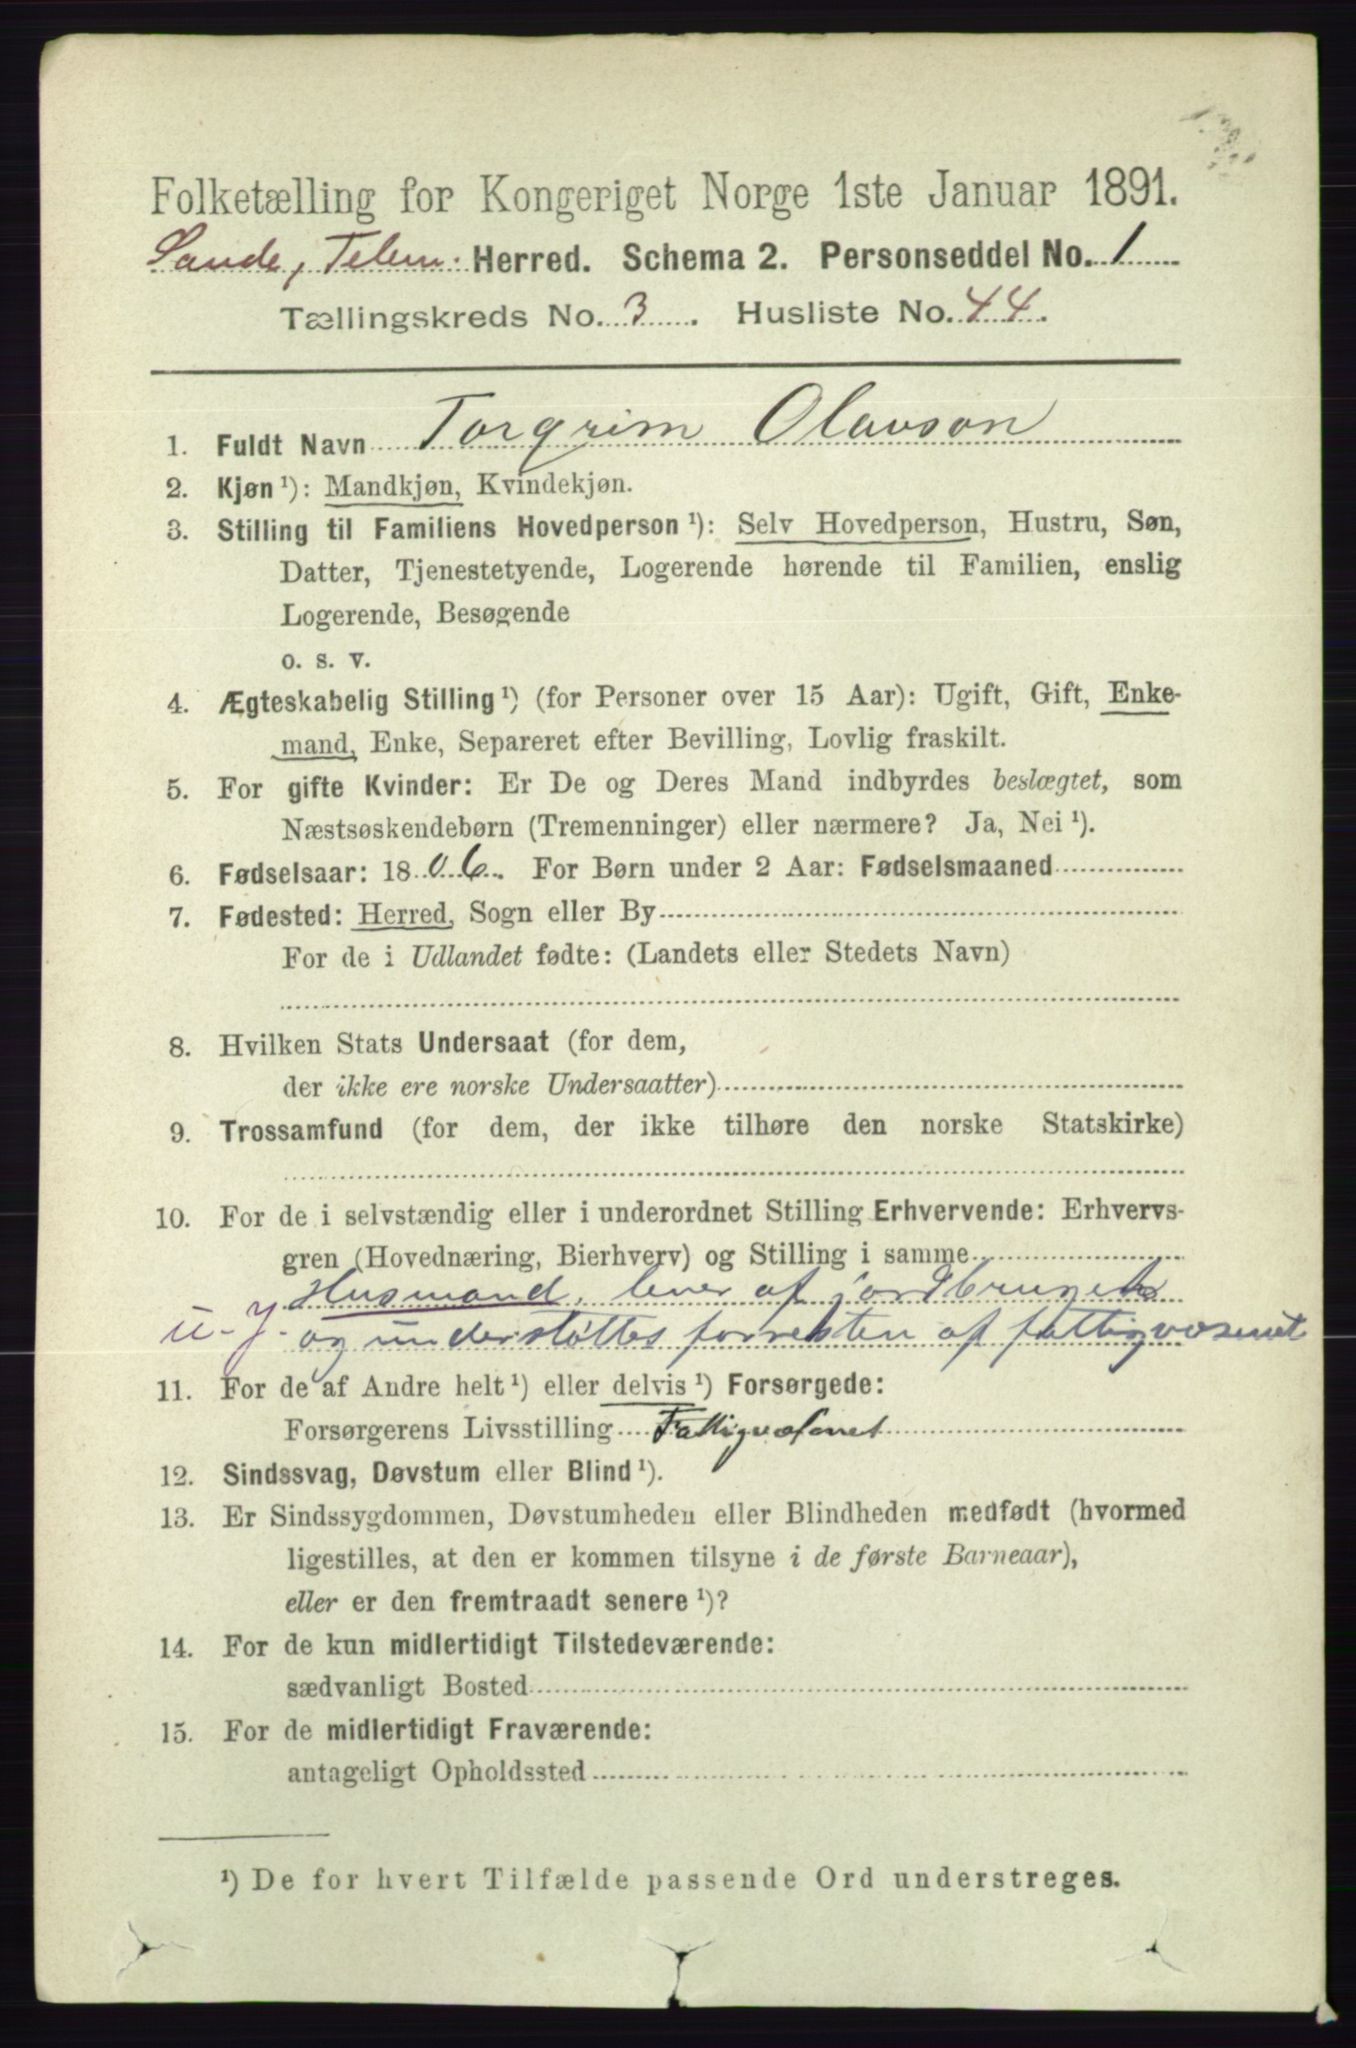 Folketælling for Kongeriget Norge 1ste Januar 1891.
Saude, Telem. Herred. Schema 2. Personseddel No. 1
Tællingskreds No. 3. Husliste No. 44.
1. Fuldt Navn Torgrim Olavson
2. Kjøn ¹): Mandkjøn, Kvindekjøn.
3. Stilling til Familiens Hovedperson ¹): Selv Hovedperson, Hustru, Søn,
Datter, Tjenestetyende, Logerende hørende til Familien, enslig
Logerende, Besøgende
o. s. v.
4. Ægteskabelig Stilling ¹) (for Personer over 15 Aar): Ugift, Gift, Enke-
mand, Enke, Separeret efter Bevilling, Lovlig fraskilt.
5. For gifte Kvinder: Er De og Deres Mand indbyrdes beslægtet, som
Næstsøskendebørn (Tremenninger) eller nærmere? Ja, Nei ¹).
6. Fødselsaar: 1806. For Børn under 2 Aar: Fødselsmaaned
7. Fødested: Herred, Sogn eller By
For de i Udlandet fødte: (Landets eller Stedets Navn)
8. Hvilken Stats Undersaat (for dem,
der ikke ere norske Undersaatter)
9. Trossamfund (for dem, der ikke tilhøre den norske Statskirke)
10. For de i selvstændig eller i underordnet Stilling Erhvervende: Erhvervs-
gren (Hovednæring, Bierhverv) og Stilling i samme
Husmand, lever af jordbruget
u. J. og understøttes forresten af fattigvæsenet
11. For de af Andre helt ¹) eller delvis ¹) Forsørgede:
Forsørgerens Livsstilling Fattigvæsenet
12. Sindssvag, Døvstum eller Blind ¹).
13. Er Sindssygdommen, Døvstumheden eller Blindheden medfødt (hvormed
ligestilles, at den er kommen tilsyne i de første Barneaar),
eller er den fremtraadt senere ¹)?
14. For de kun midlertidigt Tilstedeværende:
sædvanligt Bosted
15. For de midlertidigt Fraværende:
antageligt Opholdssted
¹) De for hvert Tilfælde passende Ord understreges.